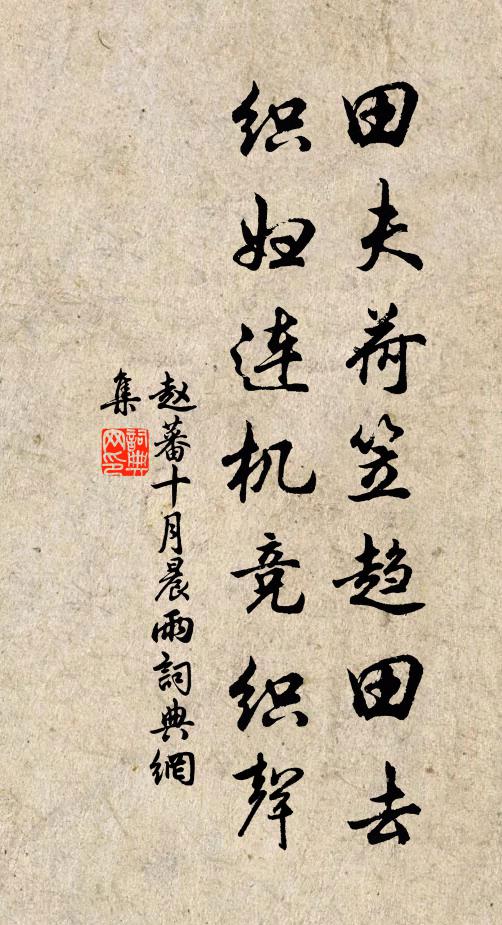 田夫荷笠趋田去
织妇连机竞织声
赵蕃十月晨雨詞典網
集
詞典网印